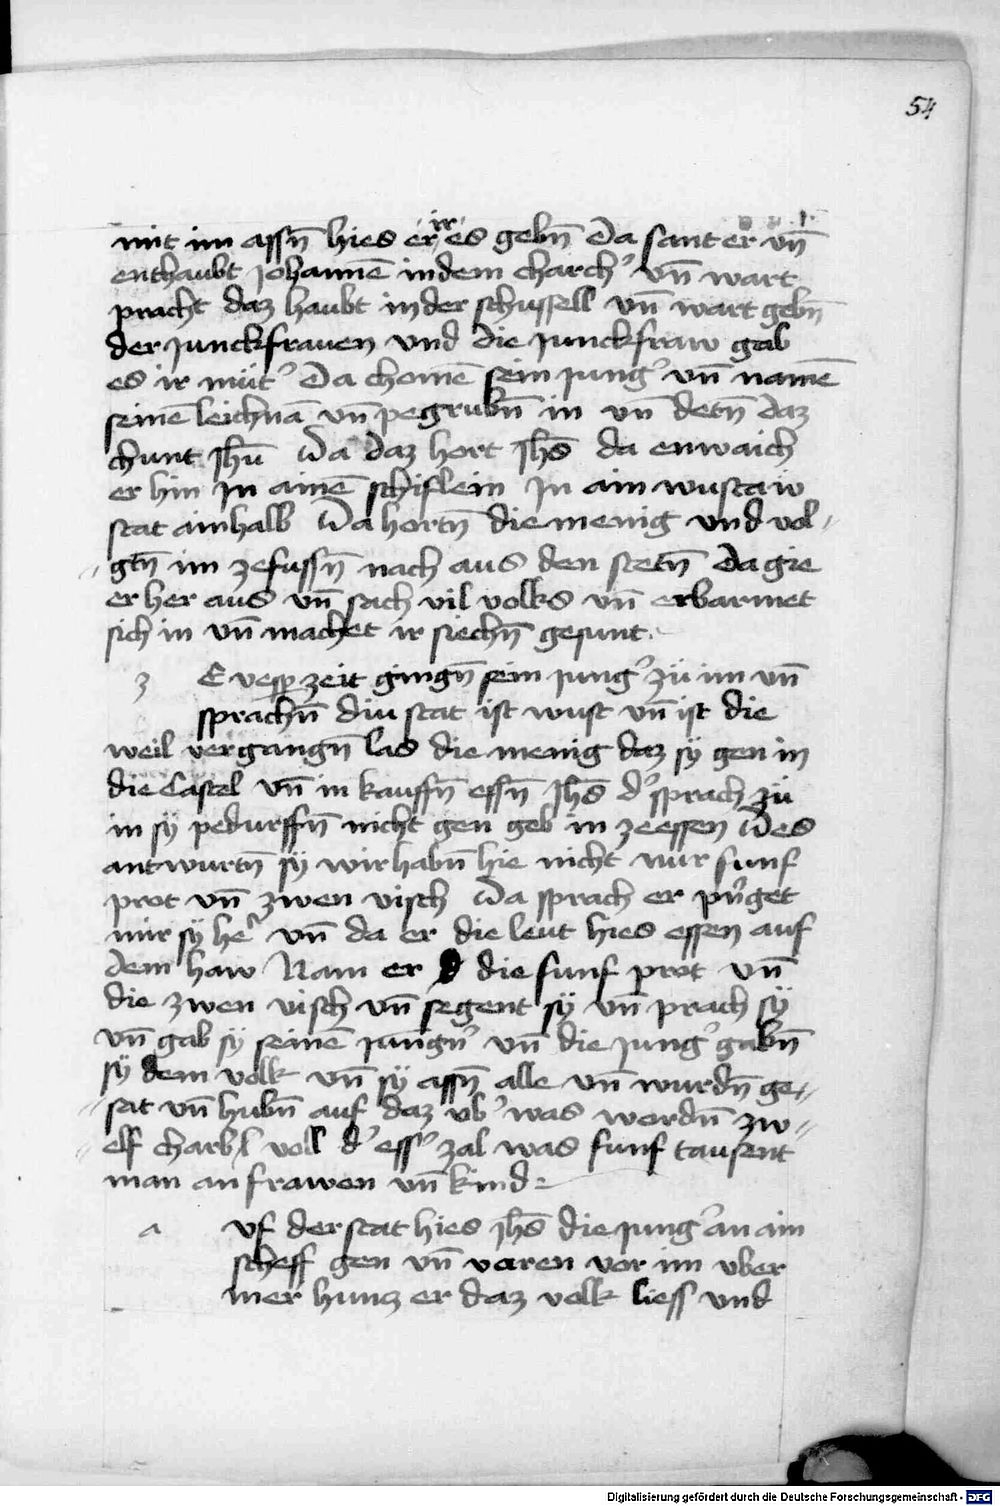 54
mit im assn̄ hies er ir es gebn̄ Da sant er vn̄
enthaubt Johannē in dem charch' vn̄ wart
pracht daz haubt in der schussell vn̄ wart gebn̄
der Junckfrauen vnd die Junckfraw gab
es ir müt' Da chomē sein Jung' vn̄ namē
seinē leichnā vn̄ pegrubn̄ in vn̄ detn̄ daz
chunt Jhū Da daz hort Jhs̄ da enwaich
er hin Jn ainē schiflein Jn ain wustaw
stat ainhalb Da hortn̄ die menig vnd vol-
gtn̄ im zefussn̄ nach aus den stetn̄ Da gie
er her aus vn̄ sach vil volks vn̄ erbarmet
sich in vn̄ machet ir siechn̄ gesunt.
z E vesp zeit gingn̄ sein Jung' zü im vn̄
sprachn̄ diu stat ist wust vn̄ ist die
weil vergangn̄ las die menig daz sy gen in
die Castel vn̄ in kauffn̄ essn̄ Jhs̄ d' sprach zü
in sy pedurffn̄ nicht gen geb in zeessen Des
antwurtn̄ sy wir habn̄ hie nicht nur funf
prot vn̄ zwen visch Da sprach er pn'get
mir sy he' vn̄ da er die leut hies essen auf
dem haw Nam er die funf prot vn̄
die zwen visch vn̄ segent sy vn̄ prach sy
vn̄ gab sy seinē Jungn' vn̄ die Jung' gabn̄
sy dem volk vn̄ sy assn̄ alle vn̄ wurdn̄ ge-
sat vn̄ hubn̄ auf daz vb' was wordn̄ zw-
elf charbl voll d' ess' zal was funf tausent
man an frawen vn̄ kind
a vf der stat hies Jhs̄ die Jung' an ain
scheff gen vn̄ varen vor im vber
mer huncz er daz volk liess vnd
Digitalisierung gefördert durch die Deutsche Forschungsgemeinschaft - DFG